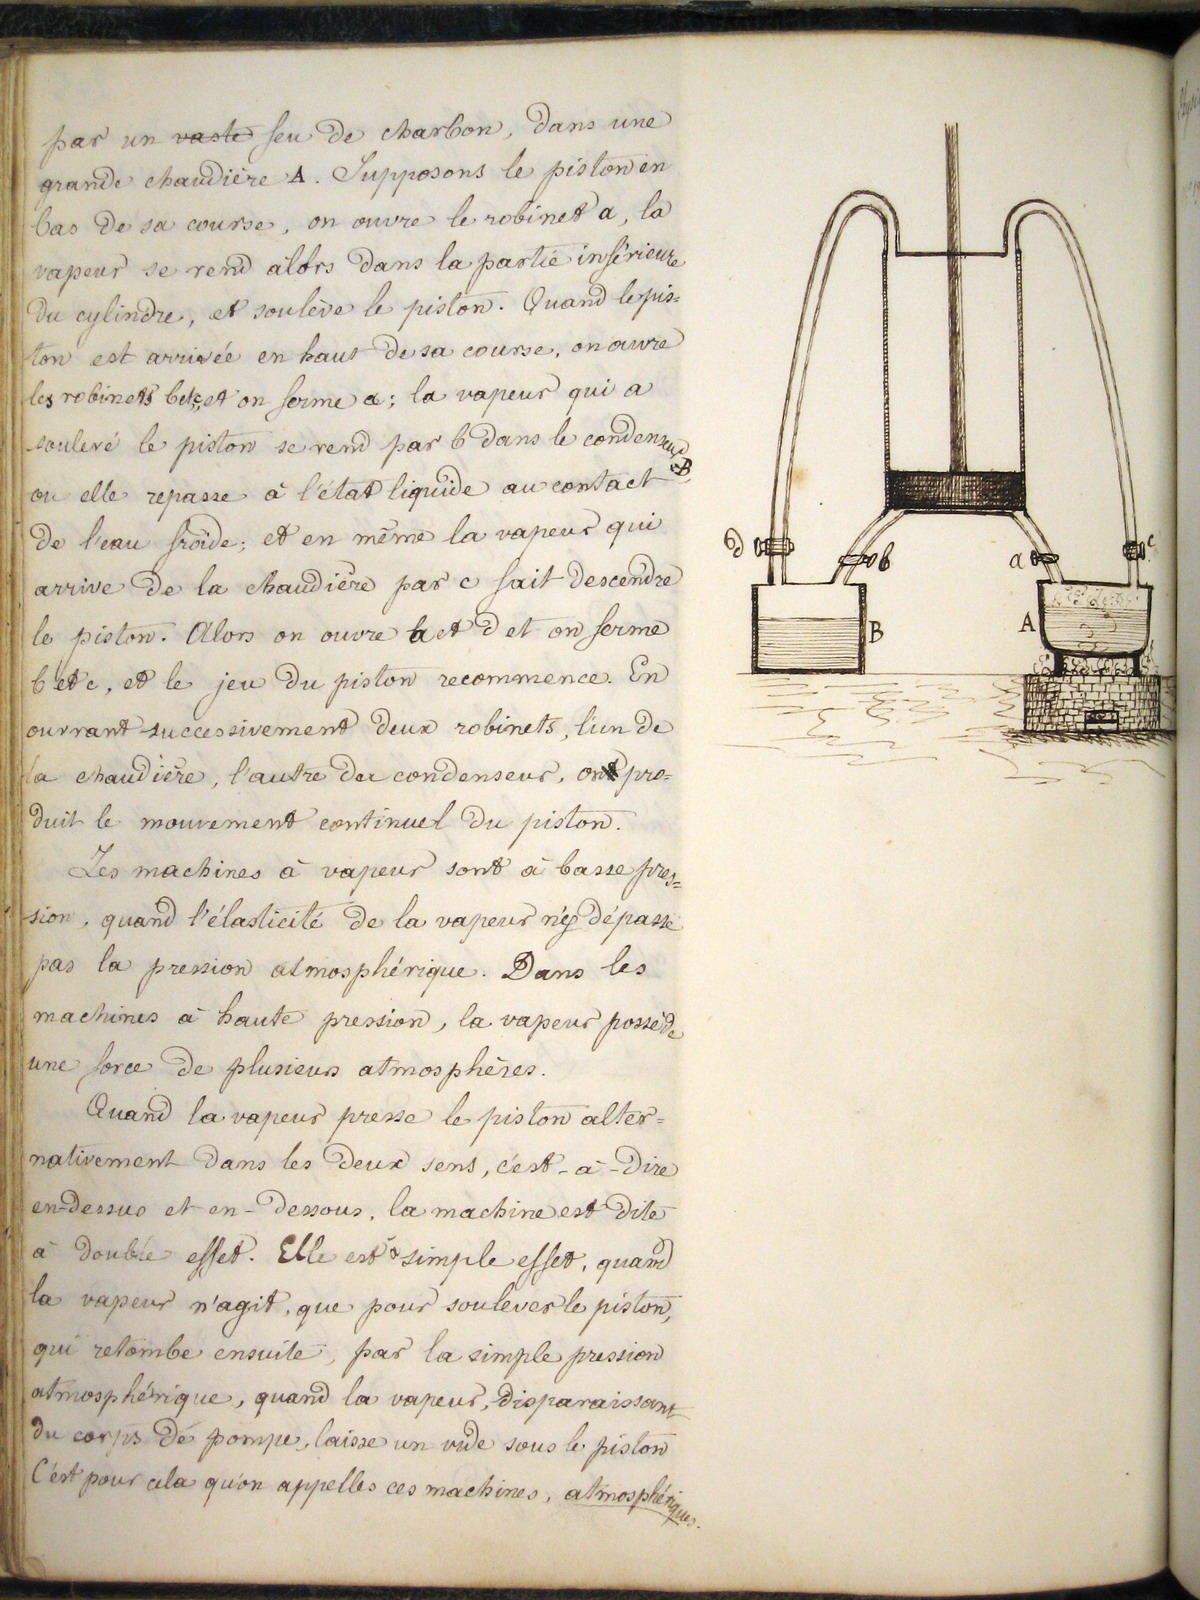 par un vaste feu de charbon, dans une
grande chaudière A. Supposons le piston en
bas de sa course, on ouvre le robinet a, la
vapeur se rend alors dans la partie inférieure
du cylindre, et soulève le piston. Quand le pis=
ton est arrivée en haut de sa course, on ouvre
les robinets b et c, et on ferme a; la vapeur qui a
soulevé le piston se rend par b dans le condenseur B
ou elle repasse à l'état liquide au contact
de l'eau froide; et en même la vapeur qui
arrive de la chaudière par c fait descendre
le piston. Alors on ouvre a et d et on ferme
b et c, et le jeu du piston recommence. En
ouvrant successivement deux robinets, l'un de
la chaudière, l'autre du condenseur, on pro=
duit le mouvement continuel du piston.
Les machines à vapeur sont à basse pres=
sion, quand l'élasticité de la vapeur ne dépasse
pas la pression atmosphérique. Dans les
machines à haute pression, la vapeur possède
une force de plusieurs atmosphères.
Quand la vapeur presse le piston alter=
nativement dans les deux sens, c'est-à-dire
en-dessus et en-dessous, la machine est dite
à double effet. Elle est à simple effet, quand
la vapeur n'agit, que pour soulever le piston,
qui retombe ensuite, par la simple pression
atmosphérique, quand la vapeur, disparaissant
du corps de pompe, laisse un vide sous le piston
C'est pour cela qu'on appelles ces machines, atmosphériques.
d
b
a
c
B
A